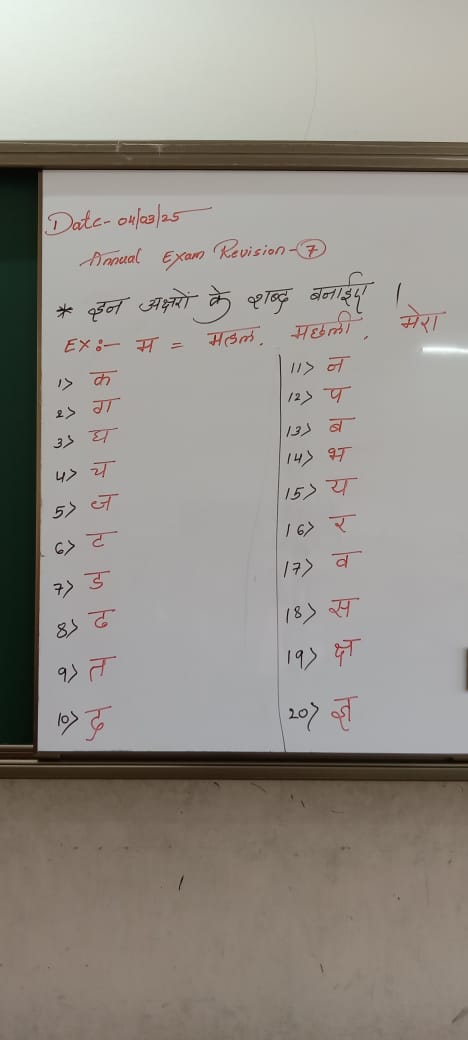 Date- 04/03/25
Annual Exam Revision-7
* इन अक्षरों के शब्द बनाईए ।
EX:- म = महल, मछली, मेरा
1> क
2> ग
3> घ
4> च
5> ज
6> ट
7> ड
8> ढ
9> त
10> द
11> न
12> प
13> ब
14> भ
15> य
16> र
17> व
18> स
19> क्ष
20> ज्ञ